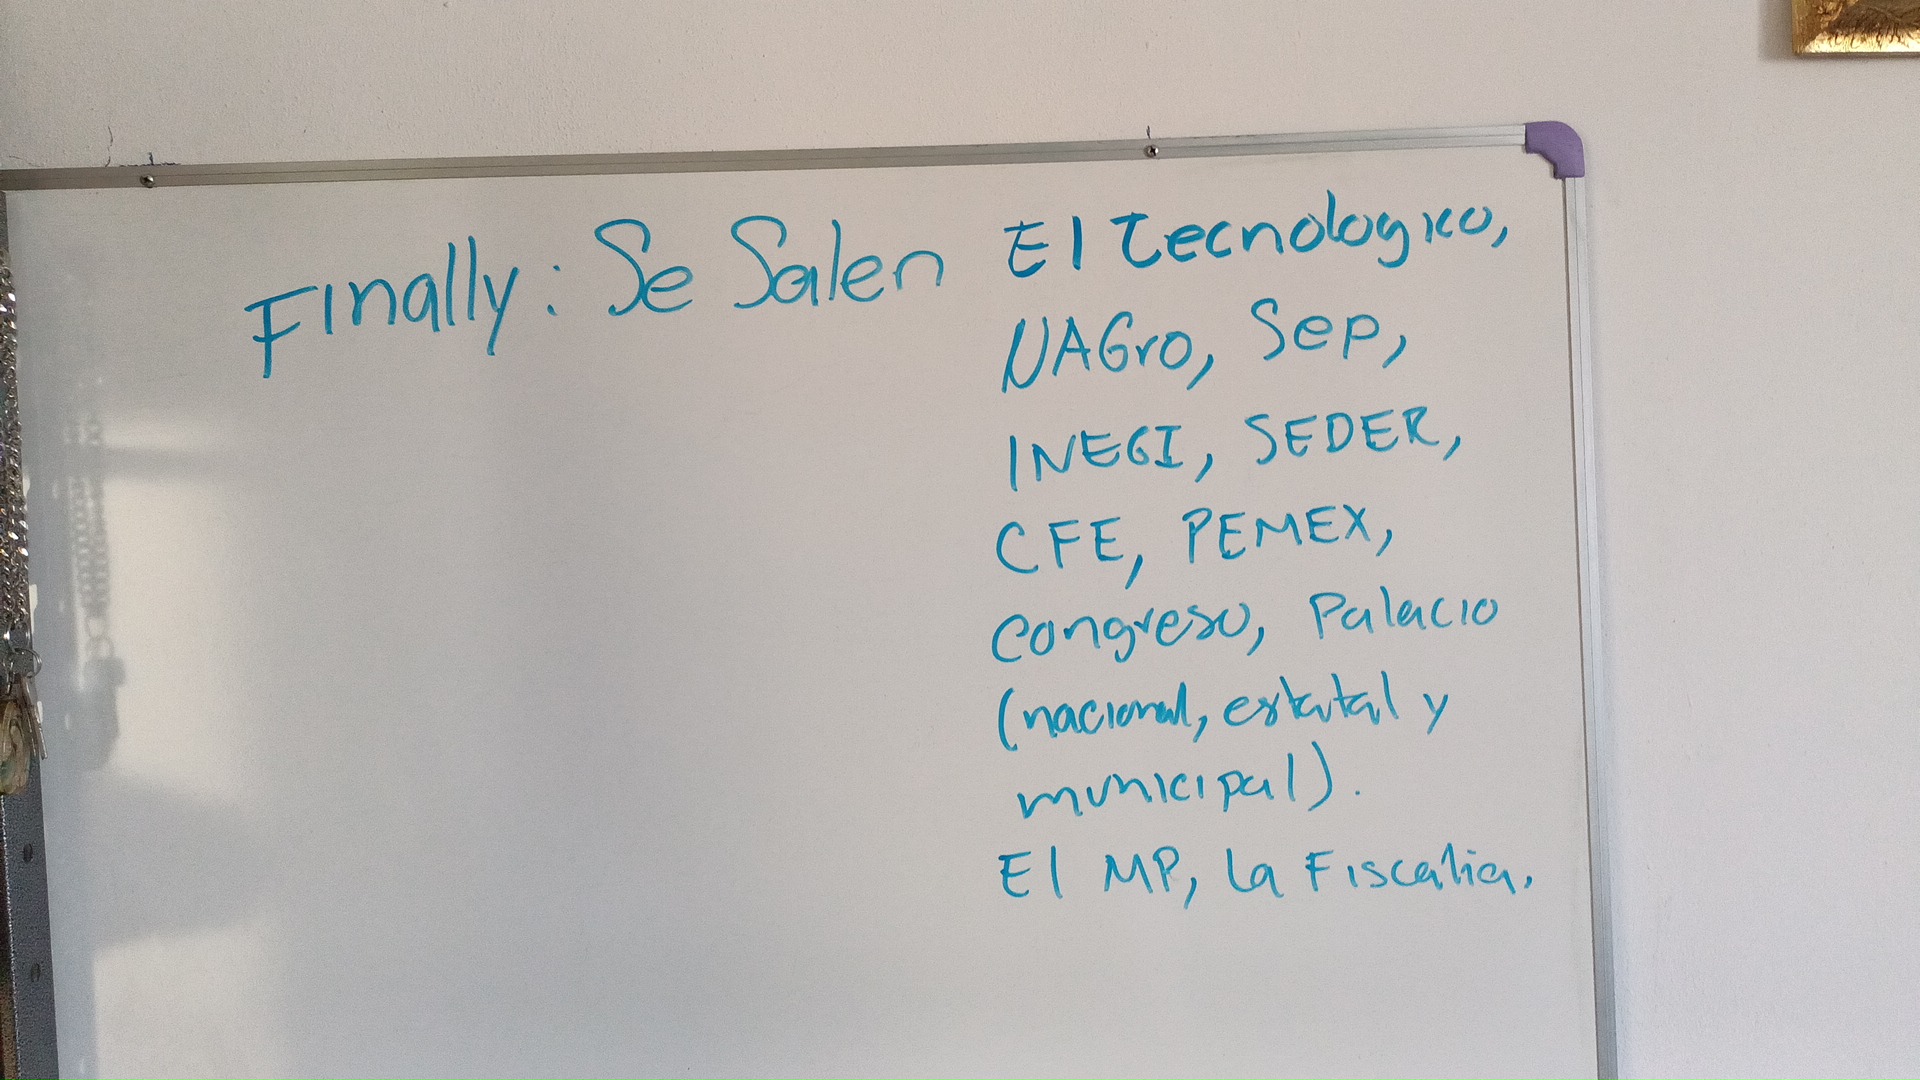 Finally: Se Salen El tecnologico,
UAGro, Sep,
INEGI, SEDER,
CFE, PEMEX,
Congreso, Palacio
(nacional, estatal y
municipal).
El MP, la Fiscalia.